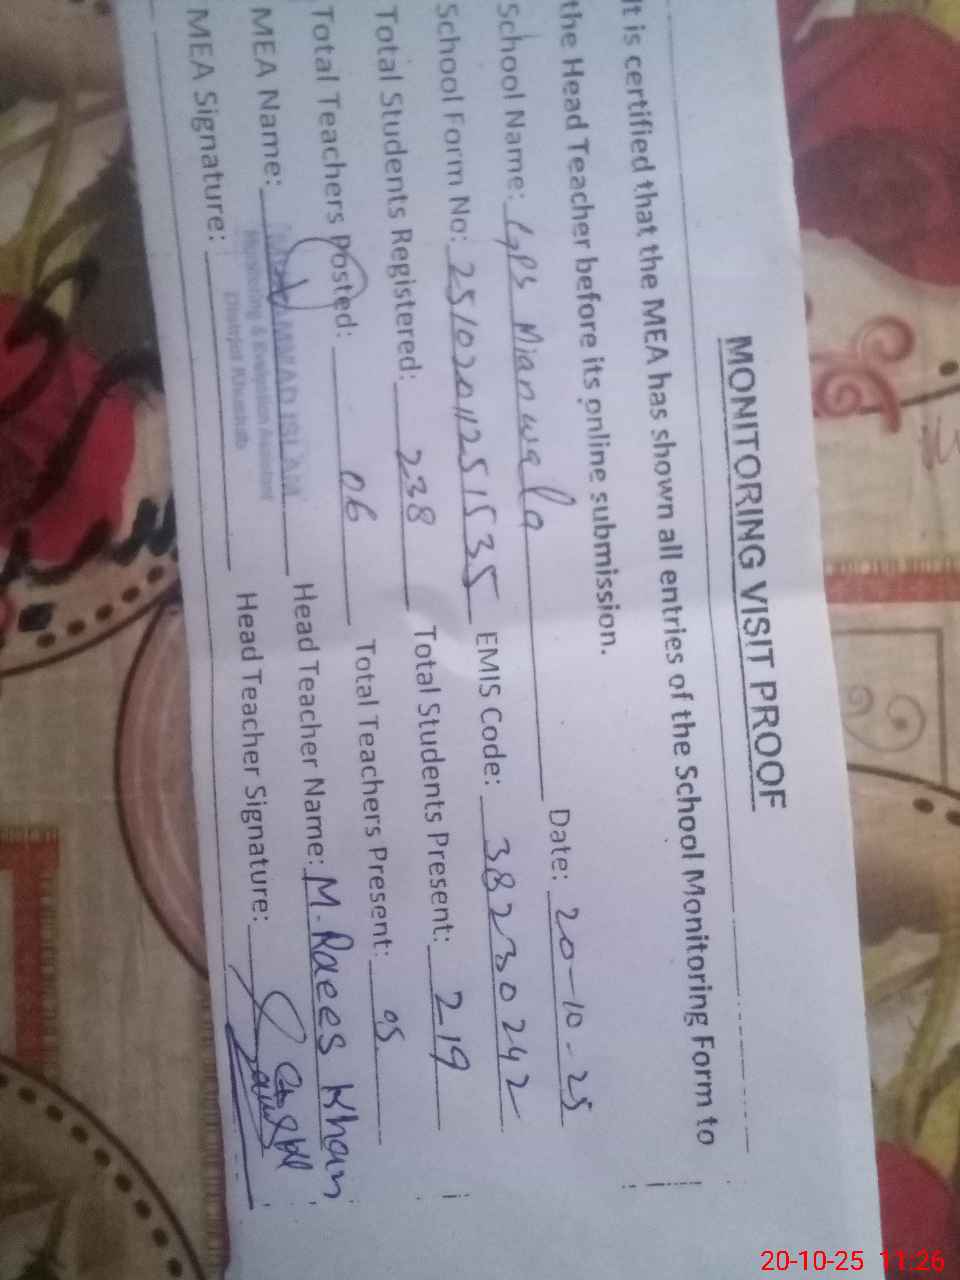 MONITORING VISIT PROOF
It is certified that the MEA has shown all entries of the School Monitoring Form to
the Head Teacher before its online submission.
School Name: GPS Mianwala Date: 20-10-25
School Form No: 25102011251535 EMIS Code: 38230242
Total Students Registered: 238 Total Students Present: 219
Total Teachers Posted: 06 Total Teachers Present: 05
MEA Name: JAWAD ISLAM Head Teacher Name: M. Raees Khan
Monitoring & Evaluation Assistant
District Khushab
MEA Signature: Head Teacher Signature:
20-10-25 11:26